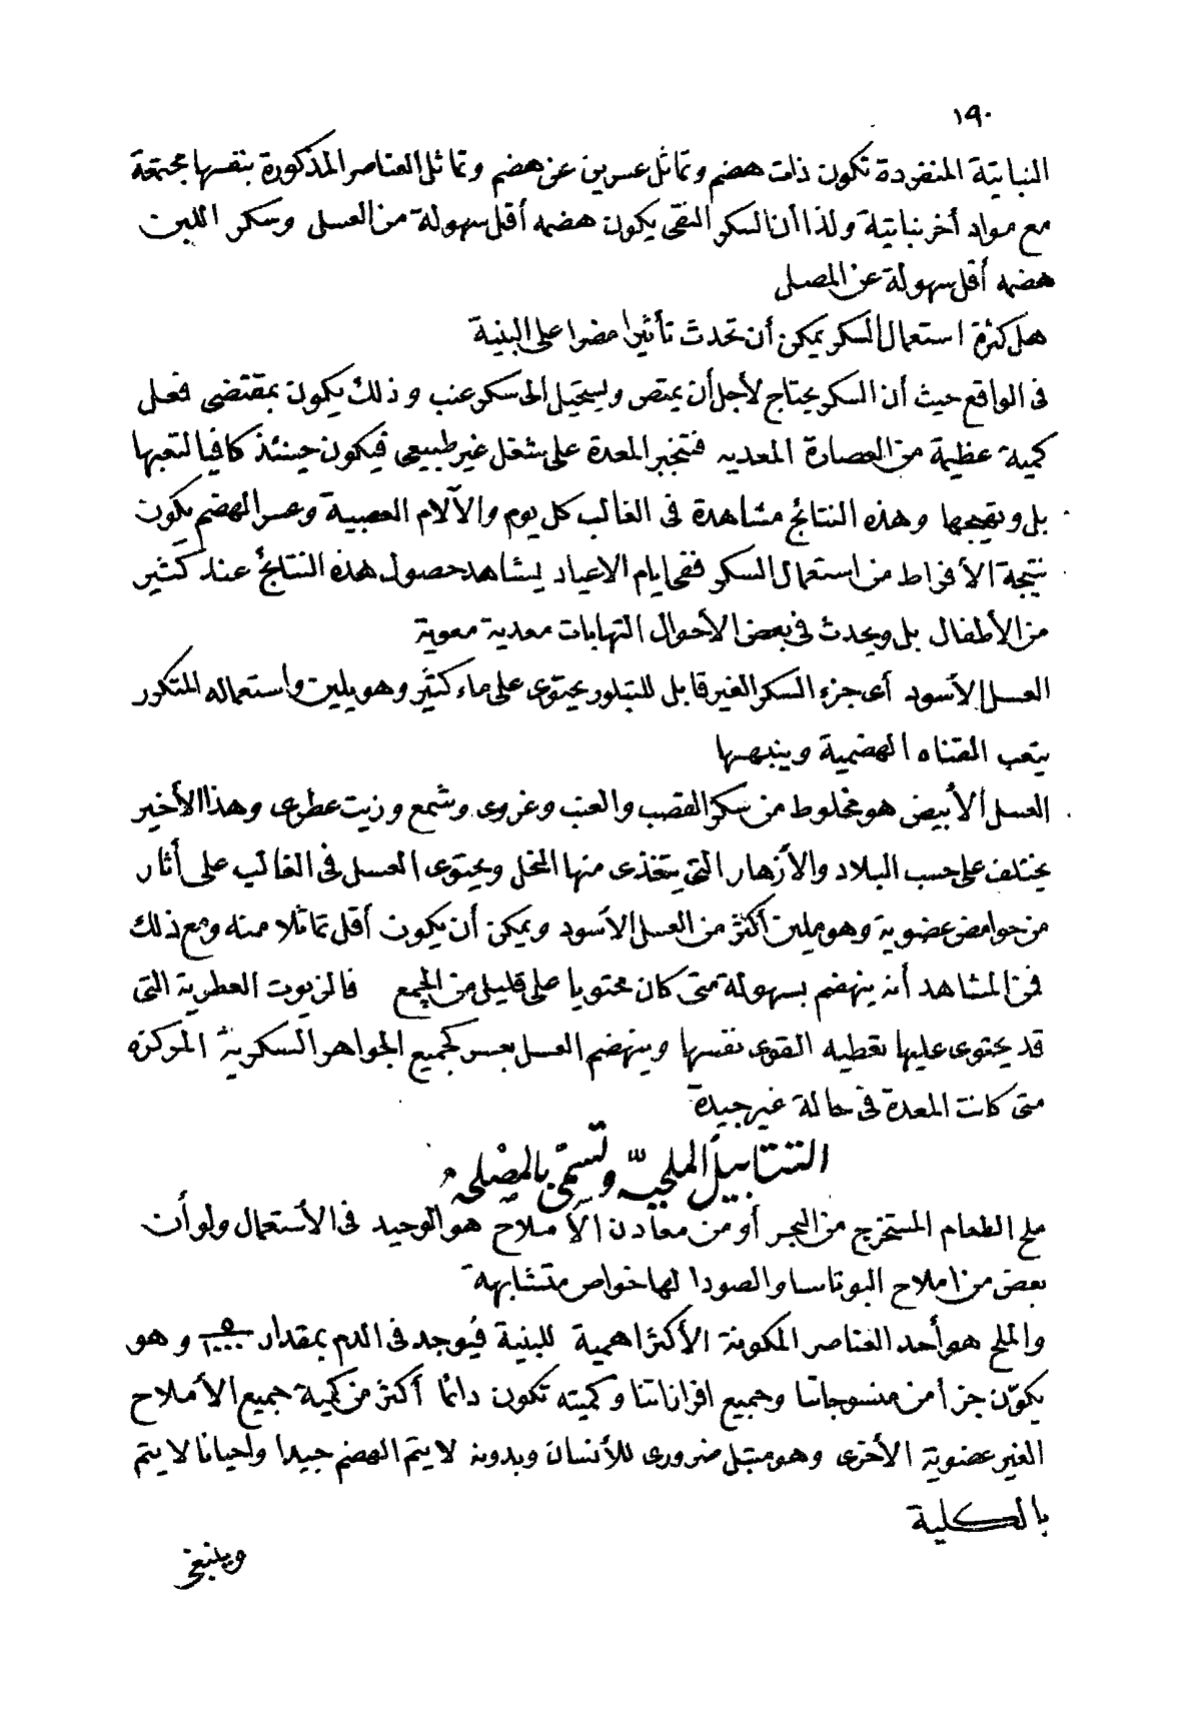 ١٩٠
النباتية المنفردة تكون ذات هضم وتماثل عسرين عن هضم وتماثل العناصر المذكورة بنفسها مجتمعة
مع مواد أخر نباتية ولذا أن السكر النقى يكون هضمه أقل سهولة من العسلى وسكر اللبن
هضمه أقل سهولة عن المصلى
هل كثرة استعمال السكر يمكن أن تحدث تأثيرا مضرا على البنية
فى الواقع حيث أن السكر يحتاج لأجل أن يمتص ويستحيل الى سكر عنب وذلك يكون بمقتضى فعل
كمية عظيمة من العصارة المعديه فتنجبر المعدة على شغل غير طبيعى فيكون حينئذ كافيا لتعبها
بل وتهيجها وهذه النتائج مشاهدة فى الغالب كل يوم والآلام العصبية وعسر الهضم يكون
نتيجة الأفراط من استعمال السكر ففى ايام الاعياد يشاهد حصول هذه النتائج عند كثير
من الأطفال بل ويحدث فى بعض الأحوال التهابات معدية معوية
العسل الأسود أى جزء السكر الغير قابل للتبلور يحتوى على ماء كثير وهو يلين واستعماله المتكرر
يتعب القناه الهضمية وينبهها
العسل الأبيض هو مخلوط من سكر القصب والعنب وغروى وشمع وزيت عطرى وهذا الأخير
يختلف على حسب البلاد والأزهار التى يتغذى منها النحل ويحتوى العسل فى الغالب على أثار
من حوامض عضوية وهو ملين أكثر من العسل الأسود ويمكن أن يكون أقل تماثلا منه ومع ذلك
فمن المشاهد أنه ينهضم بسهولة متى كان محتويا على قليل من الشمع فالزيوت العطرية التى
قد يحتوى عليها تعطيه القوى نفسها وينهضم العسل بعسر كجميع الجواهر السكرية المركزه
متى كانت المعدة فى حالة غير جيدة
التتابيل الملحيه وتسمى بالمصلحه
ملح الطعام المستخرج من البحر أو من معادن الأملاح هو الوحيد فى الأستعمال ولو أن
بعض من املاح البوتاسا والصودا لها خواص متشابهة
والملح هو أحد العناصر المكونة الأكثر اهمية للبنية فيوجد فى الدم بمقدار ٥/١٠٠٠ وهو
يكوّن جزأ من منسوجاتنا وجميع افرازاتنا وكميته تكون دائما أكثر من كمية جميع الأملاح
الغير عضوية الأخرى وهو متبل ضرورى للأنسان وبدونه لا يتم الهضم جيدا واحيانا لا يتم
بالكلية
وينبغى